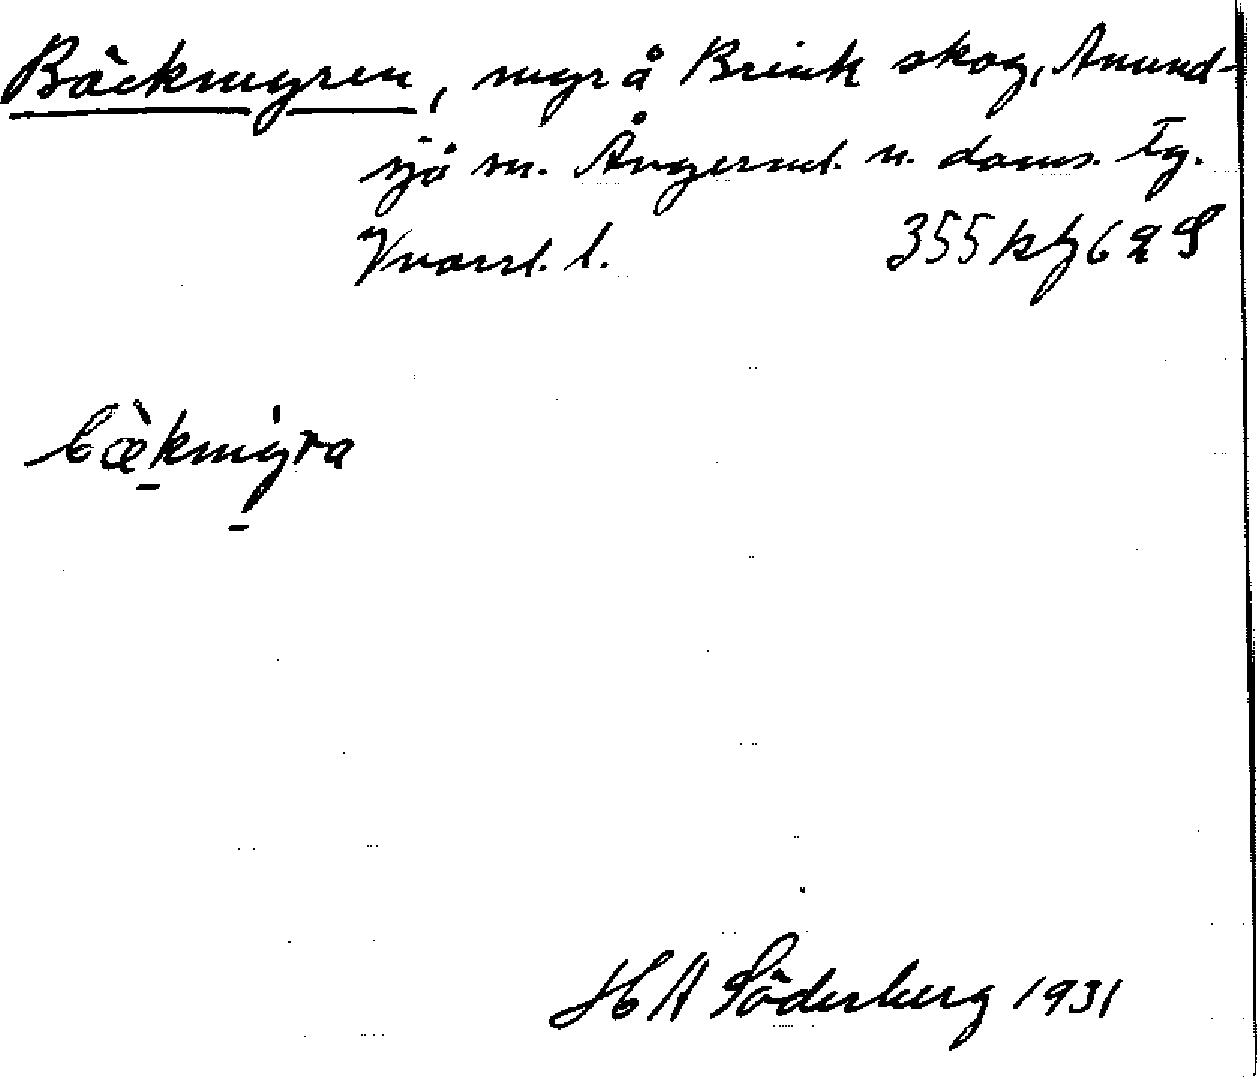 Bäckmyren, myr å Brink skog, Anund-
sjö sn. Ångerml. n. doms. Tg.
Kvarrl. l. 355 k h 62 S
bækmyra
H A Söderberg 1931